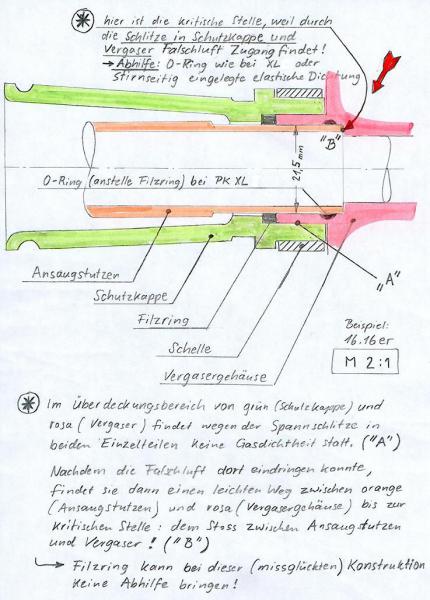 * hier ist die kritische Stelle, weil durch
die Schlitze in Schutzkappe und
Vergaser Falschluft Zugang findet!
→ Abhilfe: O-Ring wie bei XL oder
stirnseitig eingelegte elastische Dichtung
"B"
21,5 mm
O-Ring (anstelle Filzring) bei PK XL
"A"
Ansaugstutzen
Schutzkappe
Filzring
Schelle
Vergasergehäuse
Beispiel:
16.16er
M 2:1
* Im Überdeckungsbereich von grün (Schutzkappe) und
rosa (Vergaser) findet wegen der Spannschlitze in
beiden Einzelteilen keine Gasdichtheit statt. ("A")
Nachdem die Falschluft dort eindringen konnte,
findet sie dann einen leichten Weg zwischen orange
(Ansaugstutzen) und rosa (Vergasergehäuse) bis zur
kritischen Stelle: dem Stoss zwischen Ansaugstutzen
und Vergaser! ("B")
→ Filzring kann bei dieser (missglückten) Konstruktion
keine Abhilfe bringen!